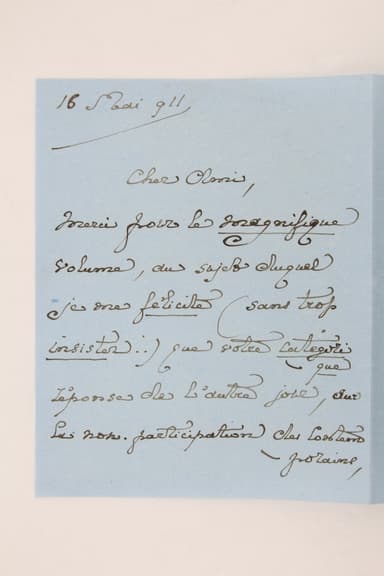 16 Mai 911,
Cher Ami,
Merci pour le magnifique
volume, au sujet duquel
je me félicite (sans trop
insister..) que votre catégori
que
réponse de l'autre jour, sur
la non-participation des contem
poraine,